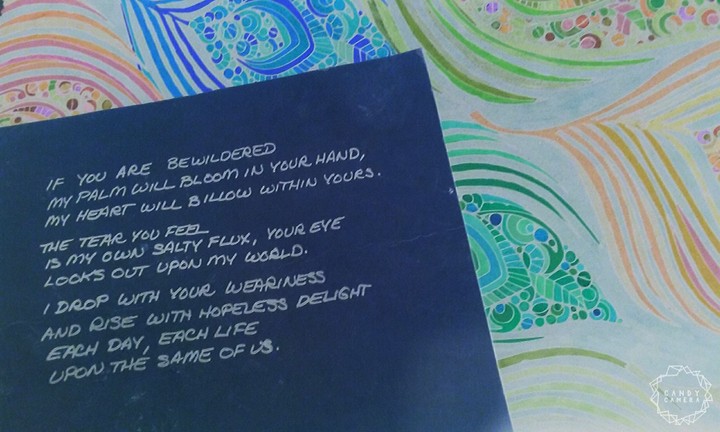 IF YOU ARE BEWILDERED
MY PALM WILL BLOOM IN YOUR HAND,
MY HEART WILL BILLOW WITHIN YOURS.
THE TEAR YOU FEEL
IS MY OWN SALTY FLUX, YOUR EYE
LOOKS OUT UPON MY WORLD.
I DROP WITH YOUR WEARINESS
AND RISE WITH HOPELESS DELIGHT
EACH DAY, EACH LIFE
UPON THE SAME OF US.
CANDY
CAMERA